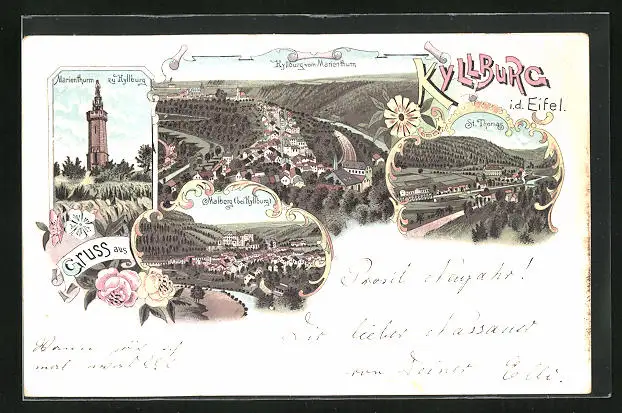 Marienthurm zu Kyllburg
Kyllburg vom Marienthurm
KYLLBURG
i.d. Eifel.
St. Thomas
Malberg (bei Kyllburg)
Gruss aus
Prosit Neujahr!
Dir lieber
von Deiner